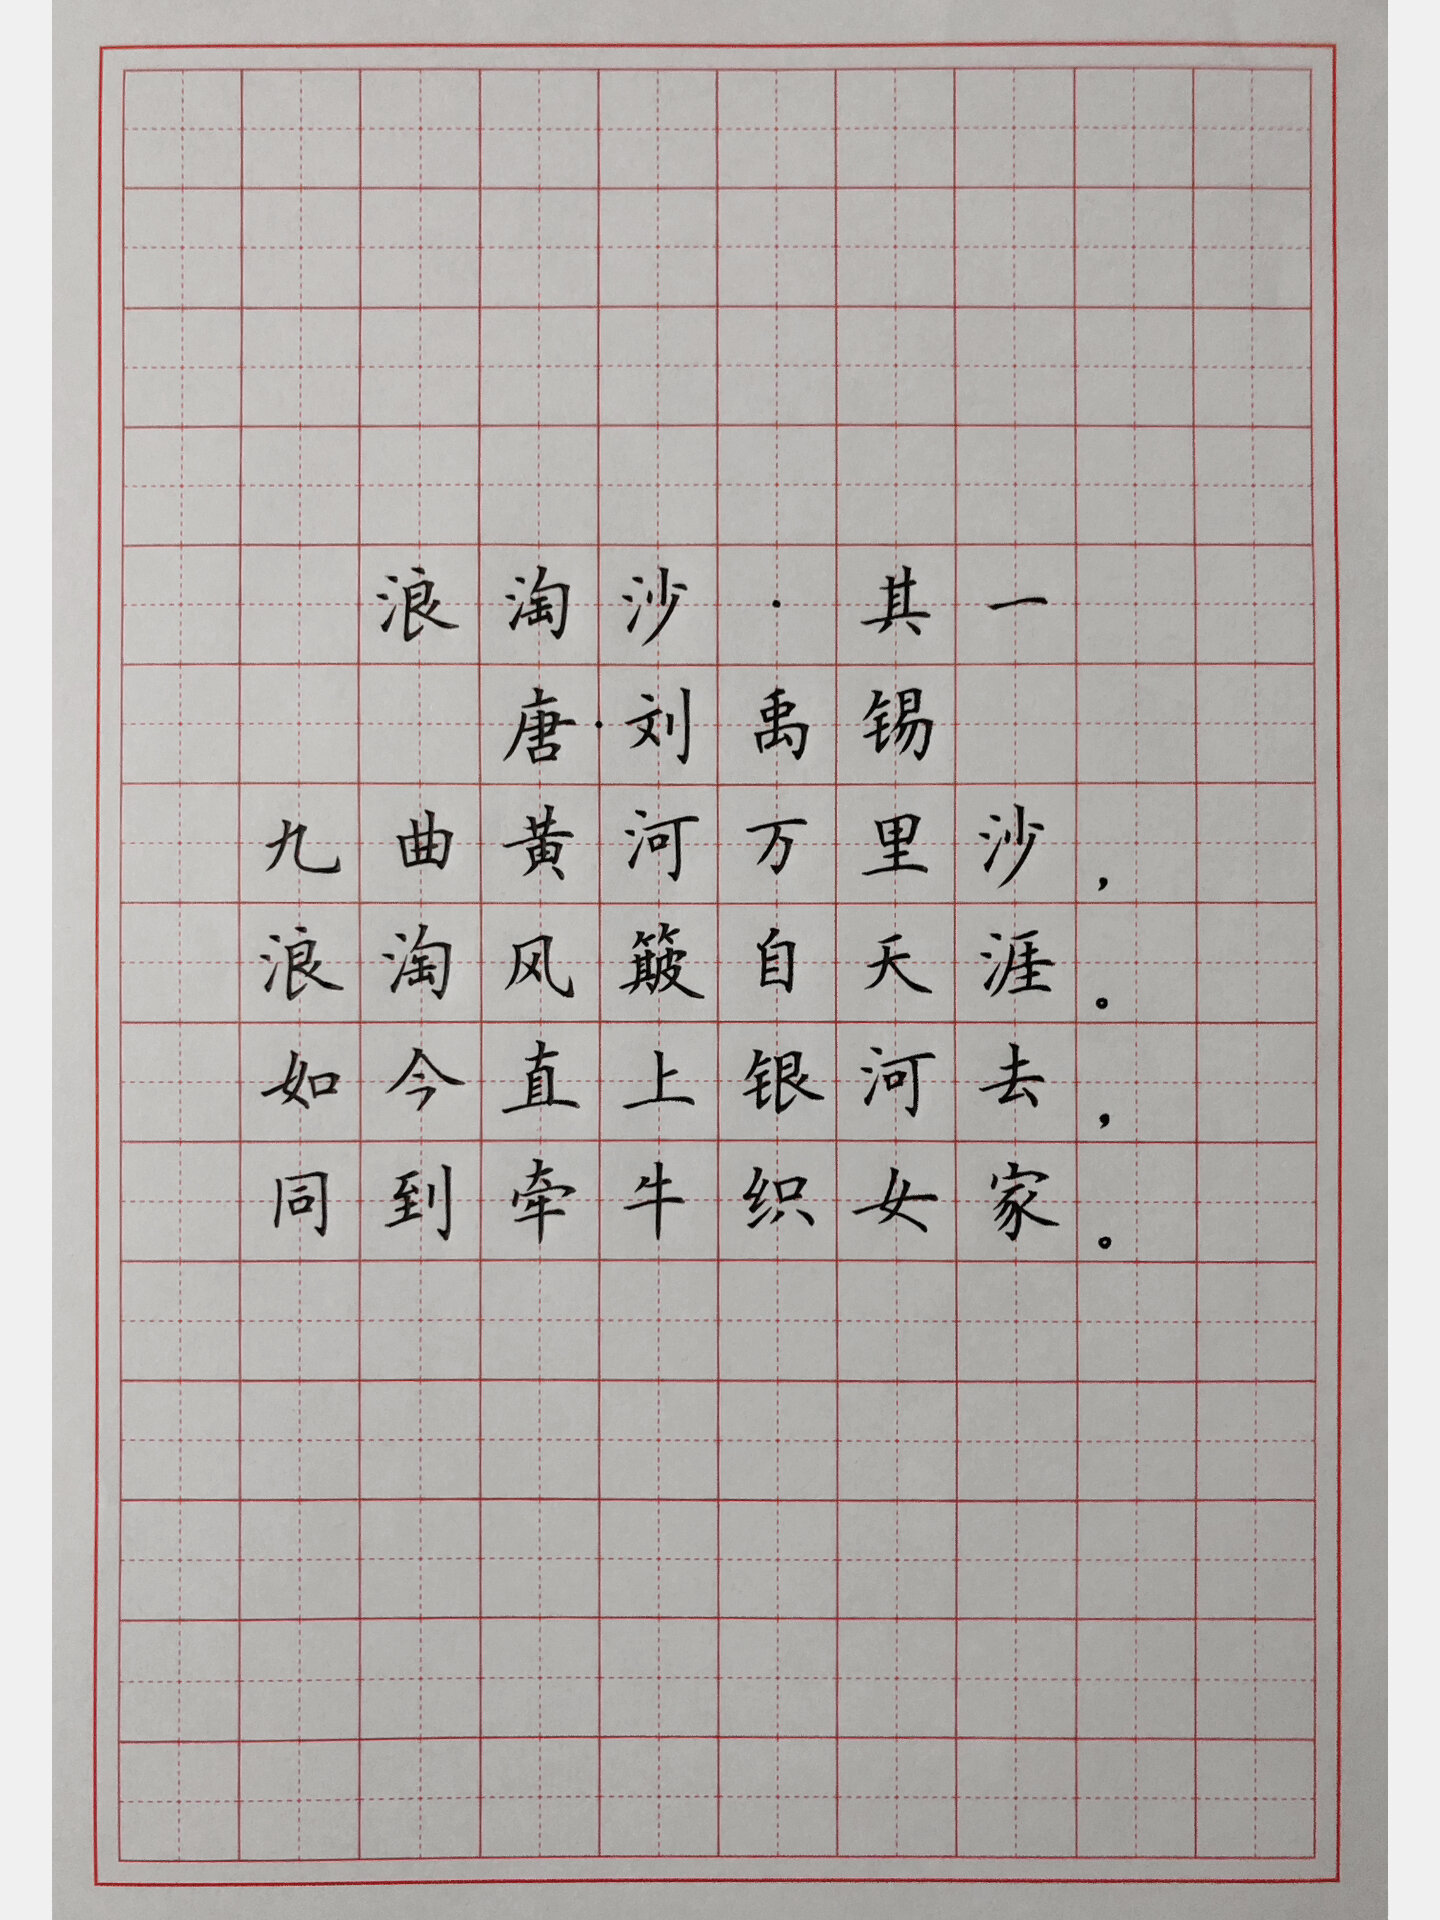 浪淘沙·其一
唐·刘禹锡
九曲黄河万里沙，
浪淘风簸自天涯。
如今直上银河去，
同到牵牛织女家。